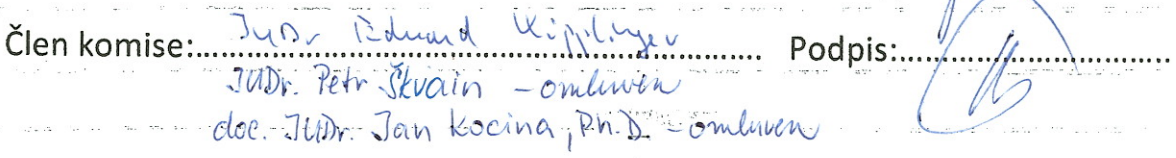 Člen komise: JUDr Eduard Kipplinger Podpis:
JUDr. Petr Škvain - omluven
doc. JUDr. Jan Kocina, Ph.D. - omluven